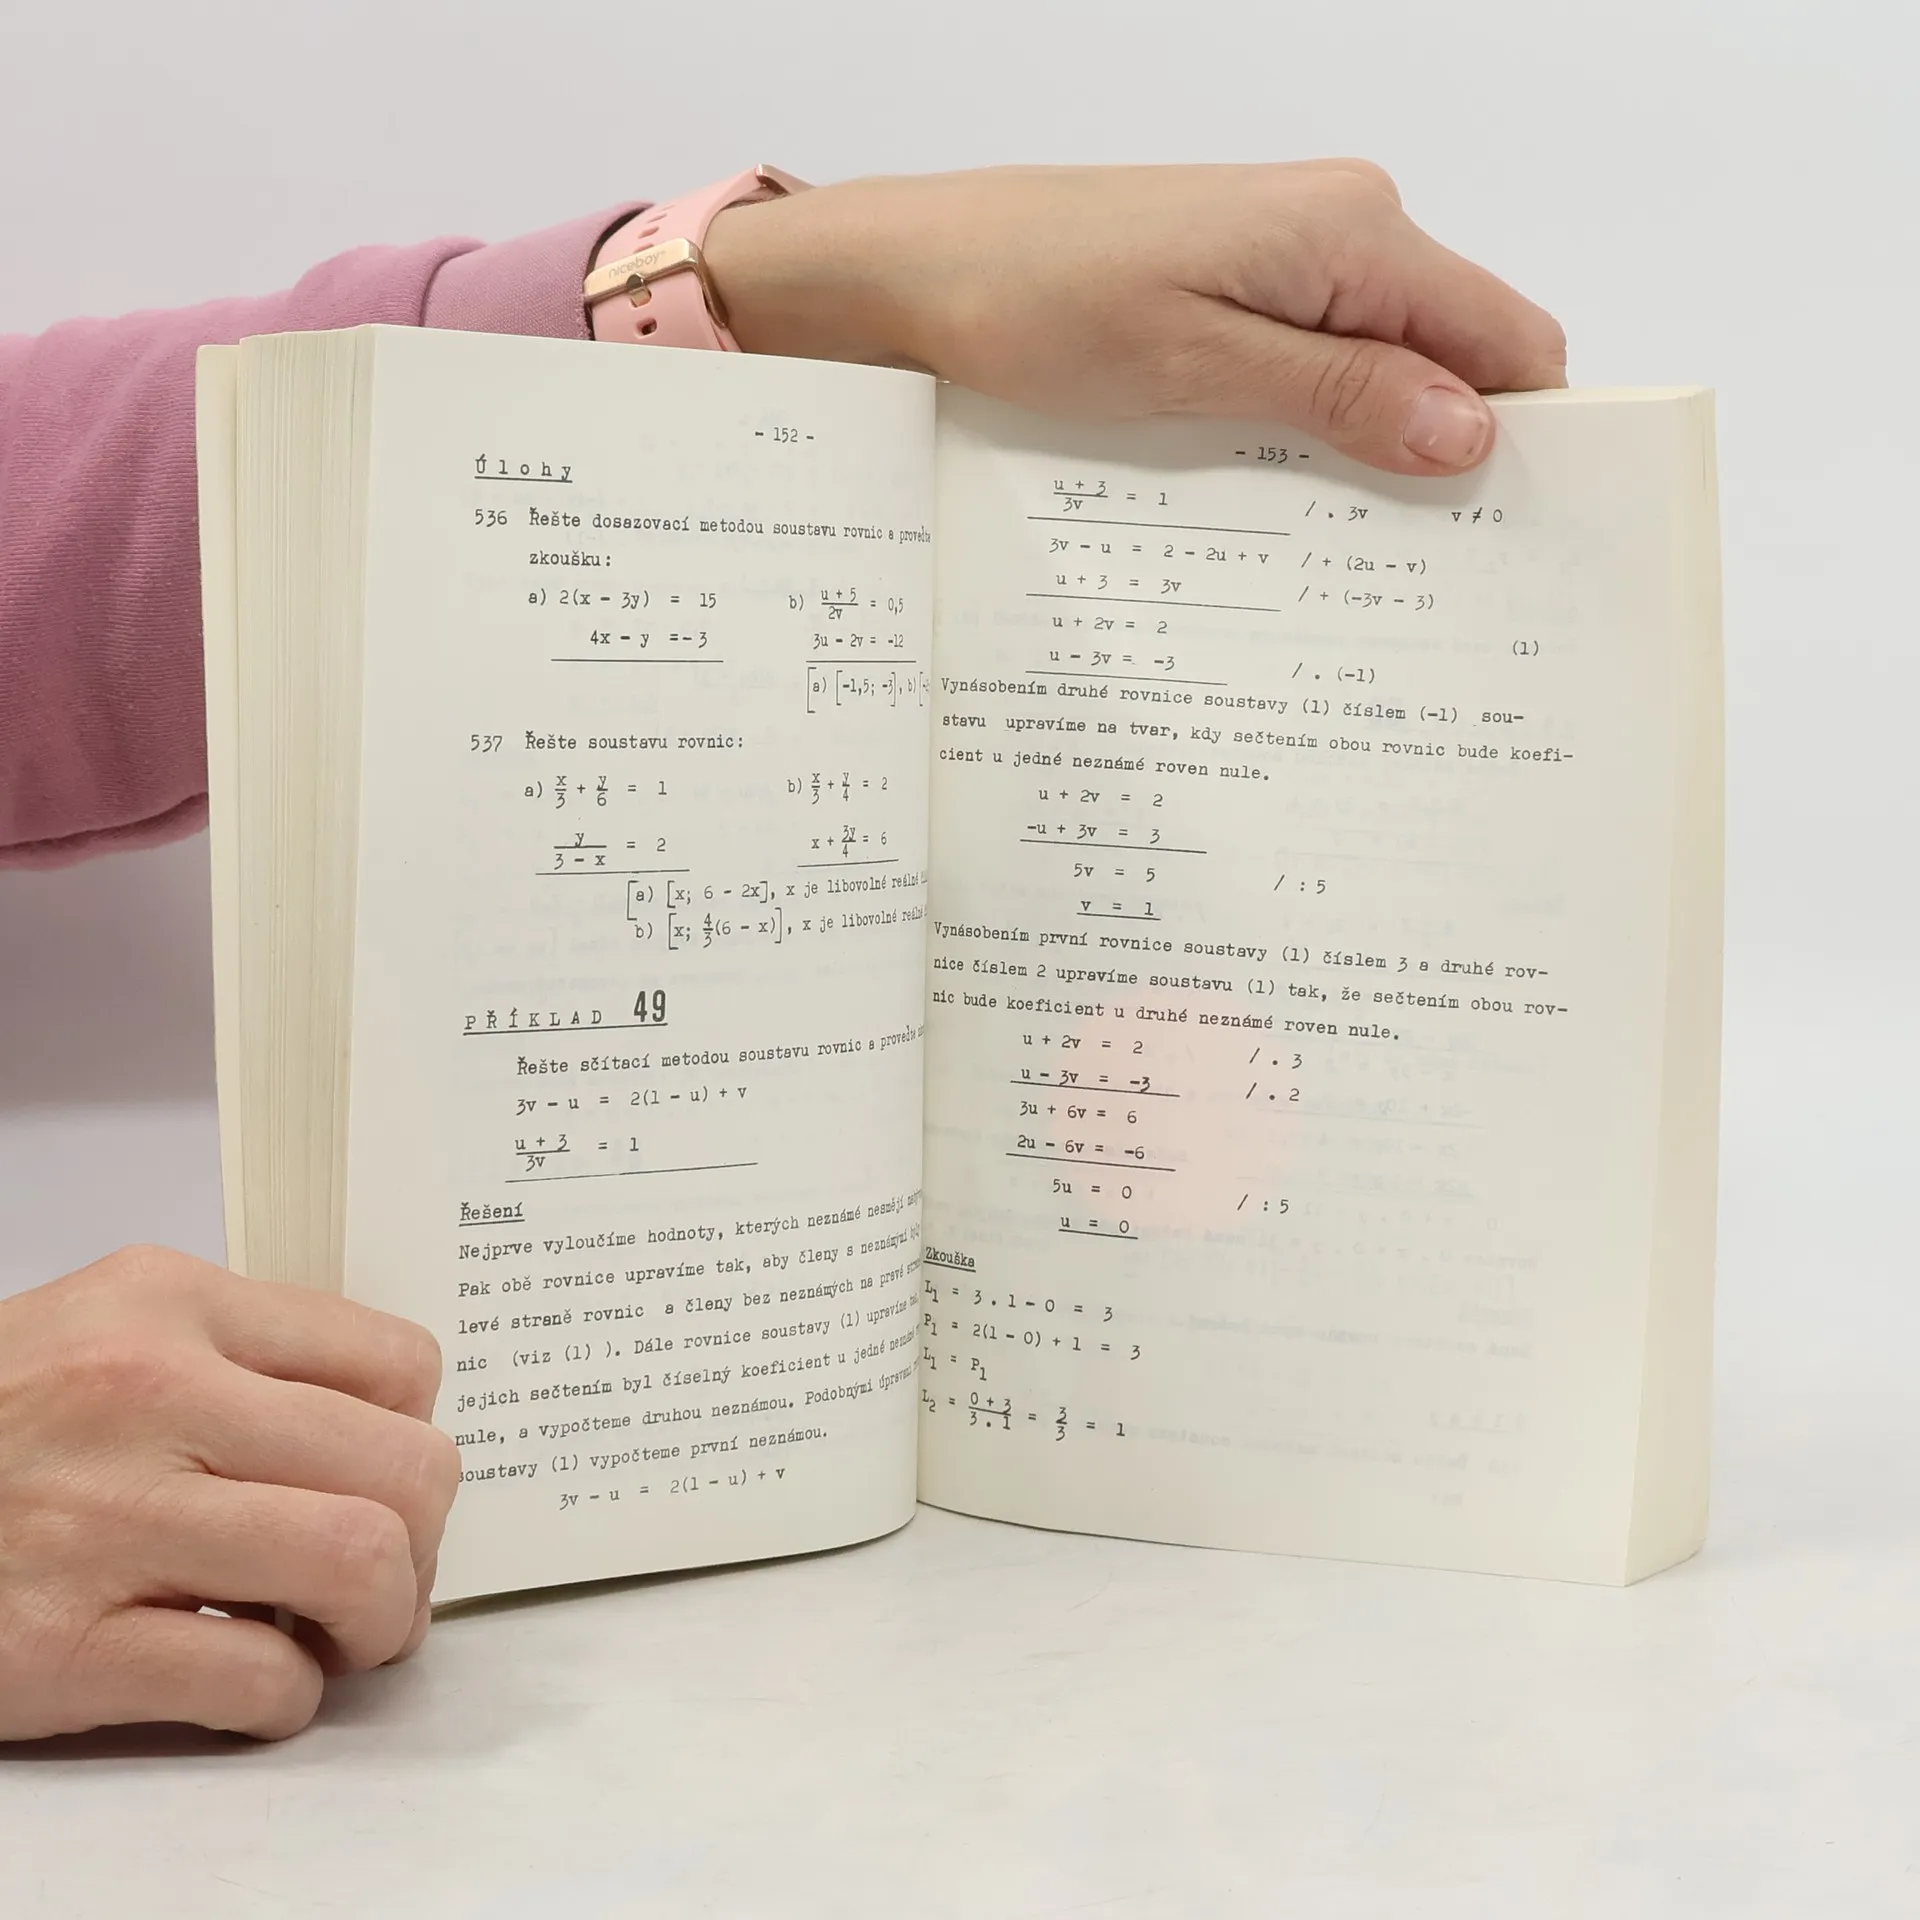 niceboy
- 152 -
Úlohy
536 Řešte dosazovací metodou soustavu rovnic a proveďte
zkoušku:
a) 2(x - 3y) = 15 b) (u + 5)/2v = 0,5
4x - y = -3 3u - 2v = -12
[a) [-1,5; -3], b)
537 Řešte soustavu rovnic:
a) x/3 + y/6 = 1 b) x/3 + y/4 = 2
y/(3 - x) = 2 x + 3y/4 = 6
[a) [x; 6 - 2x], x je libovolné reálné
b) [x; 4/3(6 - x)], x je libovolné reálné
PŘÍKLAD 49
Řešte sčítací metodou soustavu rovnic a proveďte
3v - u = 2(1 - u) + v
(u + 3)/3v = 1
Řešení
Nejprve vyloučíme hodnoty, kterých neznámé nesmějí
Pak obě rovnice upravíme tak, aby členy s neznámými byly
levé straně rovnic a členy bez neznámých na pravé
nic (viz (1) ). Dále rovnice soustavy (1) upravíme
jejich sečtením byl číselný koeficient u jedné neznámé
nule, a vypočteme druhou neznámou. Podobnými úpravami
soustavy (1) vypočteme první neznámou.
3v - u = 2(1 - u) + v
- 153 -
(u + 3)/3v = 1 / . 3v v ≠ 0
3v - u = 2 - 2u + v / + (2u - v)
u + 3 = 3v / + (-3v - 3)
u + 2v = 2 (1)
u - 3v = -3 / . (-1)
Vynásobením druhé rovnice soustavy (1) číslem (-1) sou-
stavu upravíme na tvar, kdy sečtením obou rovnic bude koefi-
cient u jedné neznámé roven nule.
u + 2v = 2
-u + 3v = 3
5v = 5 / : 5
v = 1
Vynásobením první rovnice soustavy (1) číslem 3 a druhé rov-
nice číslem 2 upravíme soustavu (1) tak, že sečtením obou rov-
nic bude koeficient u druhé neznámé roven nule.
u + 2v = 2 / . 3
u - 3v = -3 / . 2
3u + 6v = 6
2u - 6v = -6
5u = 0 / : 5
u = 0
Zkouška
L₁ = 3 . 1 - 0 = 3
P₁ = 2(1 - 0) + 1 = 3
L₁ = P₁
L₂ = (0 + 3)/(3 . 1) = 3/3 = 1